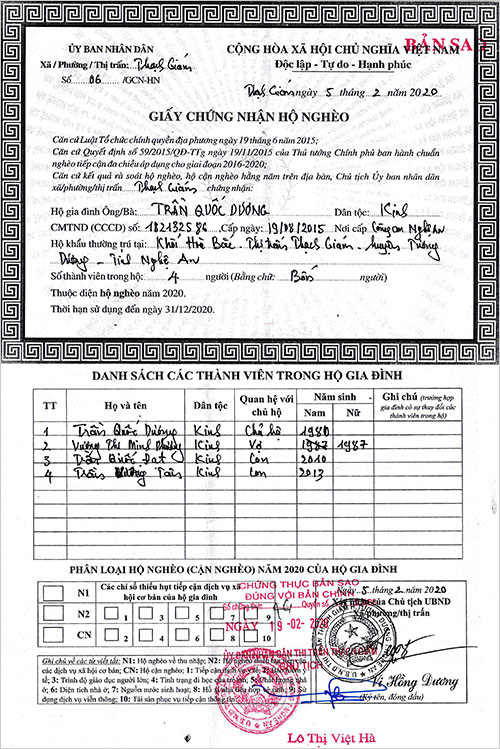 BẢN SAO
ỦY BAN NHÂN DÂN
Xã / Phường / Thị trấn: Thạch Giám
Số 06 /GCN-HN
CỘNG HÒA XÃ HỘI CHỦ NGHĨA VIỆT NAM
Độc lập - Tự do - Hạnh phúc
Thạch Giám ngày 5 tháng 2 năm 2020
GIẤY CHỨNG NHẬN HỘ NGHÈO
Căn cứ Luật Tổ chức chính quyền địa phương ngày 19 tháng 6 năm 2015;
Căn cứ Quyết định số 59/2015/QĐ-TTg ngày 19/11/2015 của Thủ tướng Chính phủ ban hành chuẩn
nghèo tiếp cận đa chiều áp dụng cho giai đoạn 2016-2020;
Căn cứ kết quả rà soát hộ nghèo, hộ cận nghèo hằng năm trên địa bàn, Chủ tịch Ủy ban nhân dân
xã/phường/thị trấn Thạch Giám chứng nhận:
Hộ gia đình Ông/Bà: TRẦN QUỐC DƯƠNG Dân tộc: Kinh
CMTND (CCCD) số: 182132586 Cấp ngày: 19/08/2015 Nơi cấp Công an Nghệ An
Hộ khẩu thường trú tại: Khối Hòa Bắc - Thị trấn Thạch Giám - huyện Tương
Dương - Tỉnh Nghệ An
Số thành viên trong hộ: 4 người (Bằng chữ: Bốn người)
Thuộc diện hộ nghèo năm 2020.
Thời hạn sử dụng đến ngày 31/12/2020.
DANH SÁCH CÁC THÀNH VIÊN TRONG HỘ GIA ĐÌNH
TT Họ và tên Dân tộc Quan hệ với chủ hộ Năm sinh Nam Nữ Ghi chú (trường hợp gia đình có sự thay đổi các thành viên trong hộ)
1 Trần Quốc Dương Kinh Chủ hộ 1980
2 Vương Thị Minh Kinh Vợ 1987 1987
3 Trần Quốc Đạt Kinh Con 2010
4 Trần Kinh Con 2013
PHÂN LOẠI HỘ NGHÈO (CẬN NGHÈO) NĂM 2020 CỦA HỘ GIA ĐÌNH
N1
N2
CN
Các chỉ số thiếu hụt tiếp cận dịch vụ xã
hội cơ bản của hộ gia đình
1 3 5
2 4 6 8 10
CHỨNG THỰC BẢN SAO
ĐÚNG VỚI BẢN CHÍNH
Số chứng thực Quyển số
NGÀY 19-02-2020
Ngày 5 tháng 2 năm 2020
Xác nhận của Chủ tịch UBND
Xã/phường/thị trấn
Ghi chú về các từ viết tắt: N1: Hộ nghèo về thu nhập; N2:
CN: Hộ cận nghèo;
6: Diện tích nhà ở; 7: Nguồn nước sinh hoạt; 8:
dụng dịch vụ viễn thông; 10: Tài sản phục vụ tiếp cận thông
Vi Hồng Dương
(Ký tên, đóng dấu)
Lô Thị Việt Hà